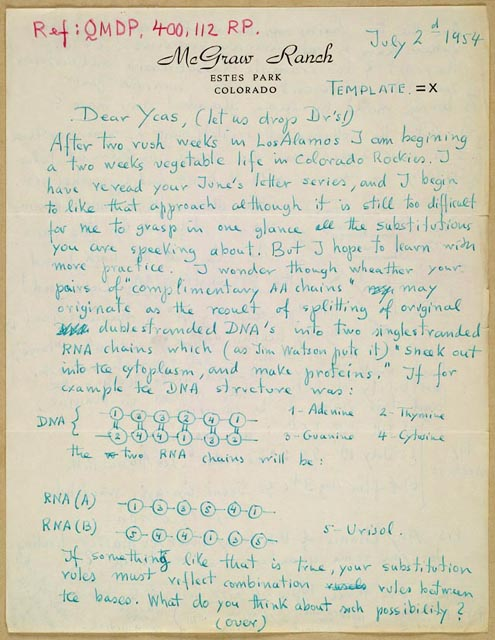 Ref: QMDP, 400,112 RP.
July 2d 1954
McGraw Ranch
ESTES PARK
COLORADO
TEMPLATE. = X
Dear Ycas, (let us drop Dr's!)
After two rush weeks in Los Alamos I am begining
a two weeks vegetable life in Colorado Rockies. I
have reread your June's letter series, and I begin
to like that approach although it is still too difficult
for me to grasp in one glance all the substitutions
you are speeking about. But I hope to learn with
more practice. I wonder though wheather your
pairs of "complimentary AA chains" may
originate as the result of splitting of original
dublestranded DNA's into two singlestranded
RNA chains which (as Jim Watson puts it) "sneek out
into the cytoplasm, and make proteins." If for
example the DNA structure was:
DNA { 1 2 3 2 4 1 1-Adenine 2-Thymine
2 4 4 1 3 2 3-Guanine 4-Cytosine
the two RNA chains will be:
RNA(A) 1 3 3 5 4 1
RNA(B) 5 4 4 1 3 5 5-Urisol.
If something like that is true, your substitution
rules must reflect combination rules between
the bases. What do you think about such possibility?
(over)